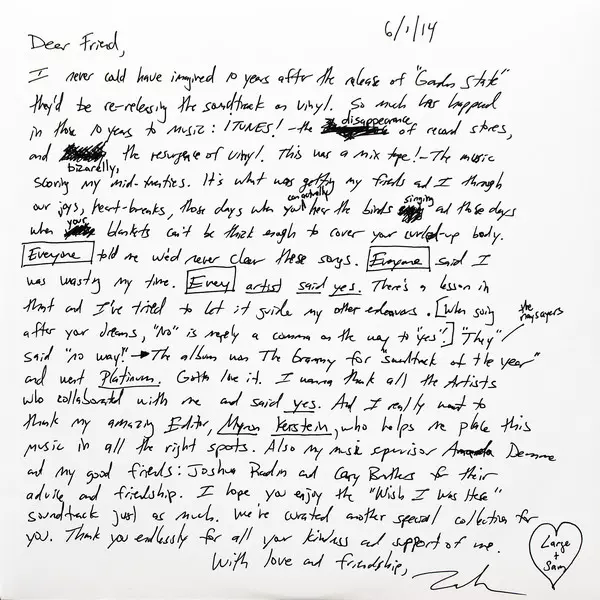 6/1/14
Dear Friend,
I never could have imagined 10 years after the release of "Garden State"
they'd be re-releasing the soundtrack on vinyl. So much has happened
in those 10 years to music: ITUNES! - the disappearance of record stores,
and bizarrely, the resurgence of vinyl. This was a mix tape! - The music
scoring my mid-twenties. It's what was getting my friends and I through
our joys, heart-breaks, those days when you can actually hear the birds singing and those days
when your blankets can't be thick enough to cover your curled-up body.
Everyone told me we'd never clear these songs. Everyone said I
was wasting my time. Every artist said yes. There's a lesson in
that and I've tried to let it guide my other endeavors. [When going
after your dreams, "No" is merely a comma on the way to "yes".] "They" the naysayers
said "no way!" → The album won The Grammy for "soundtrack of the year"
and went Platinum. Gotta love it. I wanna thank all the Artists
who collaborated with me and said yes. And I really want to
thank my amazing Editor, Myron Kerstein, who helps me place this
music in all the right spots. Also my music supervisor Amanda Demme
and my good friends: Joshua Radin and Cary Brothers for their
advice and friendship. I hope you enjoy the "Wish I Was Here"
soundtrack just as much. We've curated another special collection for
you. Thank you endlessly for all your kindness and support of me.
With love and friendship,
Large
+
Sam